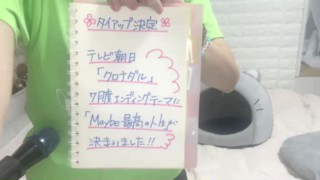 タイアップ決定
テレビ朝日
「クロナダル」
7月度エンディングテーマに
「Maybe最高の人生が
決まりました!!